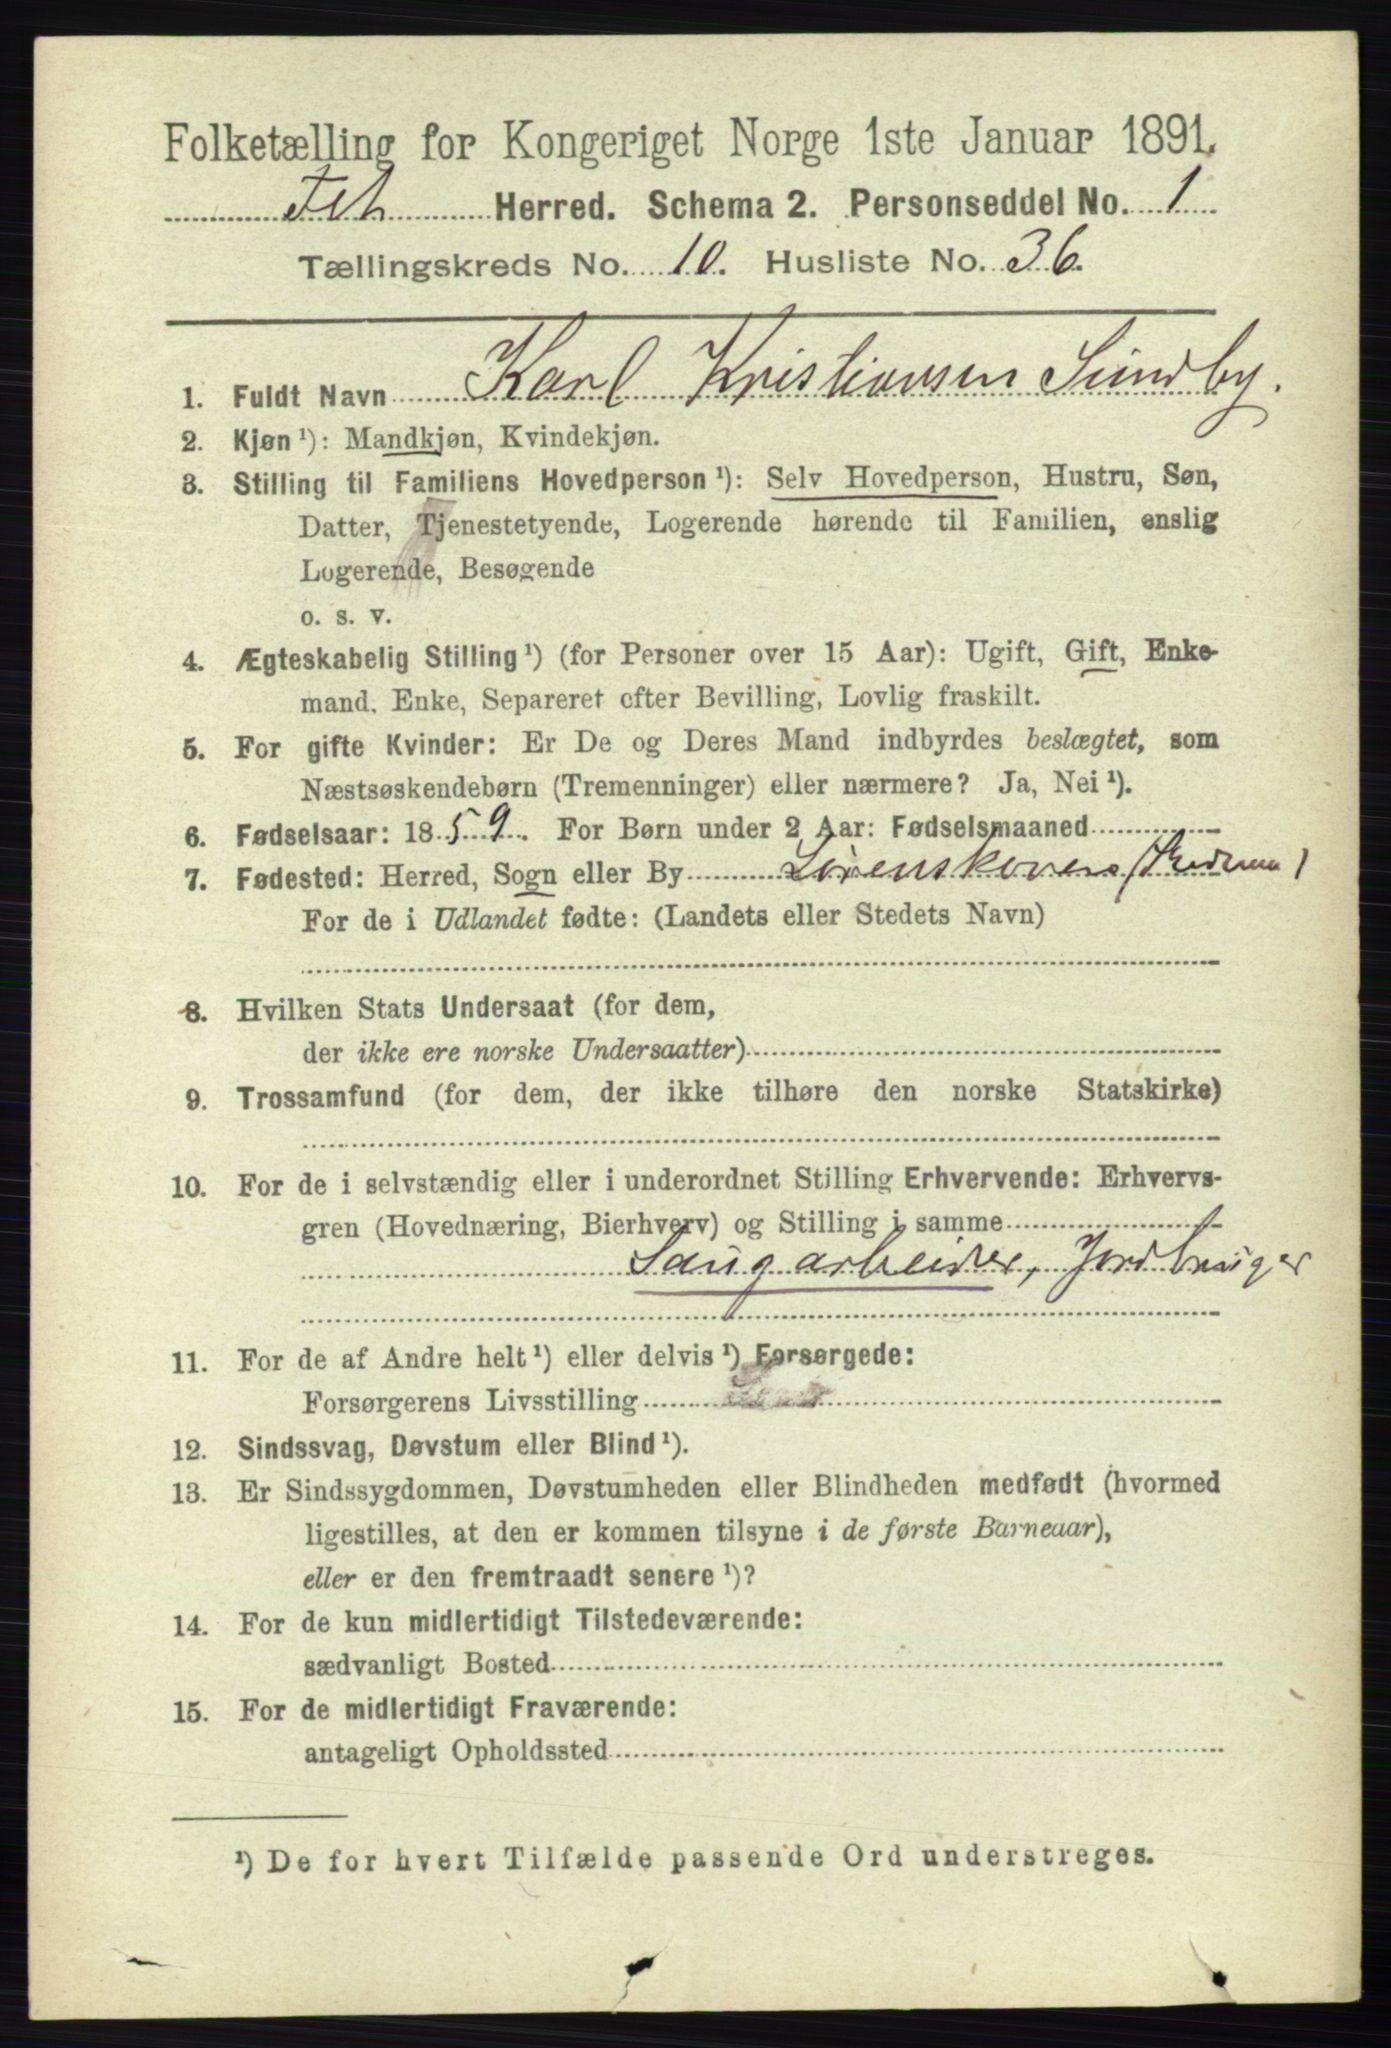 Folketælling for Kongeriget Norge 1ste Januar 1891.
Fet Herred. Schema 2. Personseddel No. 1
Tællingskreds No. 10. Husliste No. 36.
1. Fuldt Navn Karl Kristiansen Sundby.
2. Kjøn ¹): Mandkjøn, Kvindekjøn.
3. Stilling til Familiens Hovedperson ¹): Selv Hovedperson, Hustru, Søn,
Datter, Tjenestetyende, Logerende hørende til Familien, enslig
Logerende, Besøgende
o. s. v.
4. Ægteskabelig Stilling ¹) (for Personer over 15 Aar): Ugift, Gift, Enke-
mand, Enke, Separeret efter Bevilling, Lovlig fraskilt.
5. For gifte Kvinder: Er De og Deres Mand indbyrdes beslægtet, som
Næstsøskendebørn (Tremenninger) eller nærmere? Ja, Nei ¹).
6. Fødselsaar: 1859. For Børn under 2 Aar: Fødselsmaaned
7. Fødested: Herred, Sogn eller By
For de i Udlandet fødte: (Landets eller Stedets Navn)
8. Hvilken Stats Undersaat (for dem,
der ikke ere norske Undersaatter)
9. Trossamfund (for dem, der ikke tilhøre den norske Statskirke)
10. For de i selvstændig eller i underordnet Stilling Erhvervende: Erhvervs-
gren (Hovednæring, Bierhverv) og Stilling i samme
Saugarbeider, Jordbruger
11. For de af Andre helt ¹) eller delvis ¹) Forsørgede:
Forsørgerens Livsstilling
12. Sindssvag, Døvstum eller Blind ¹).
13. Er Sindssygdommen, Døvstumheden eller Blindheden medfødt (hvormed
ligestilles, at den er kommen tilsyne i de første Barneaar),
eller er den fremtraadt senere ¹)?
14. For de kun midlertidigt Tilstedeværende:
sædvanligt Bosted
15. For de midlertidigt Fraværende:
antageligt Opholdssted
¹) De for hvert Tilfælde passende Ord understreges.